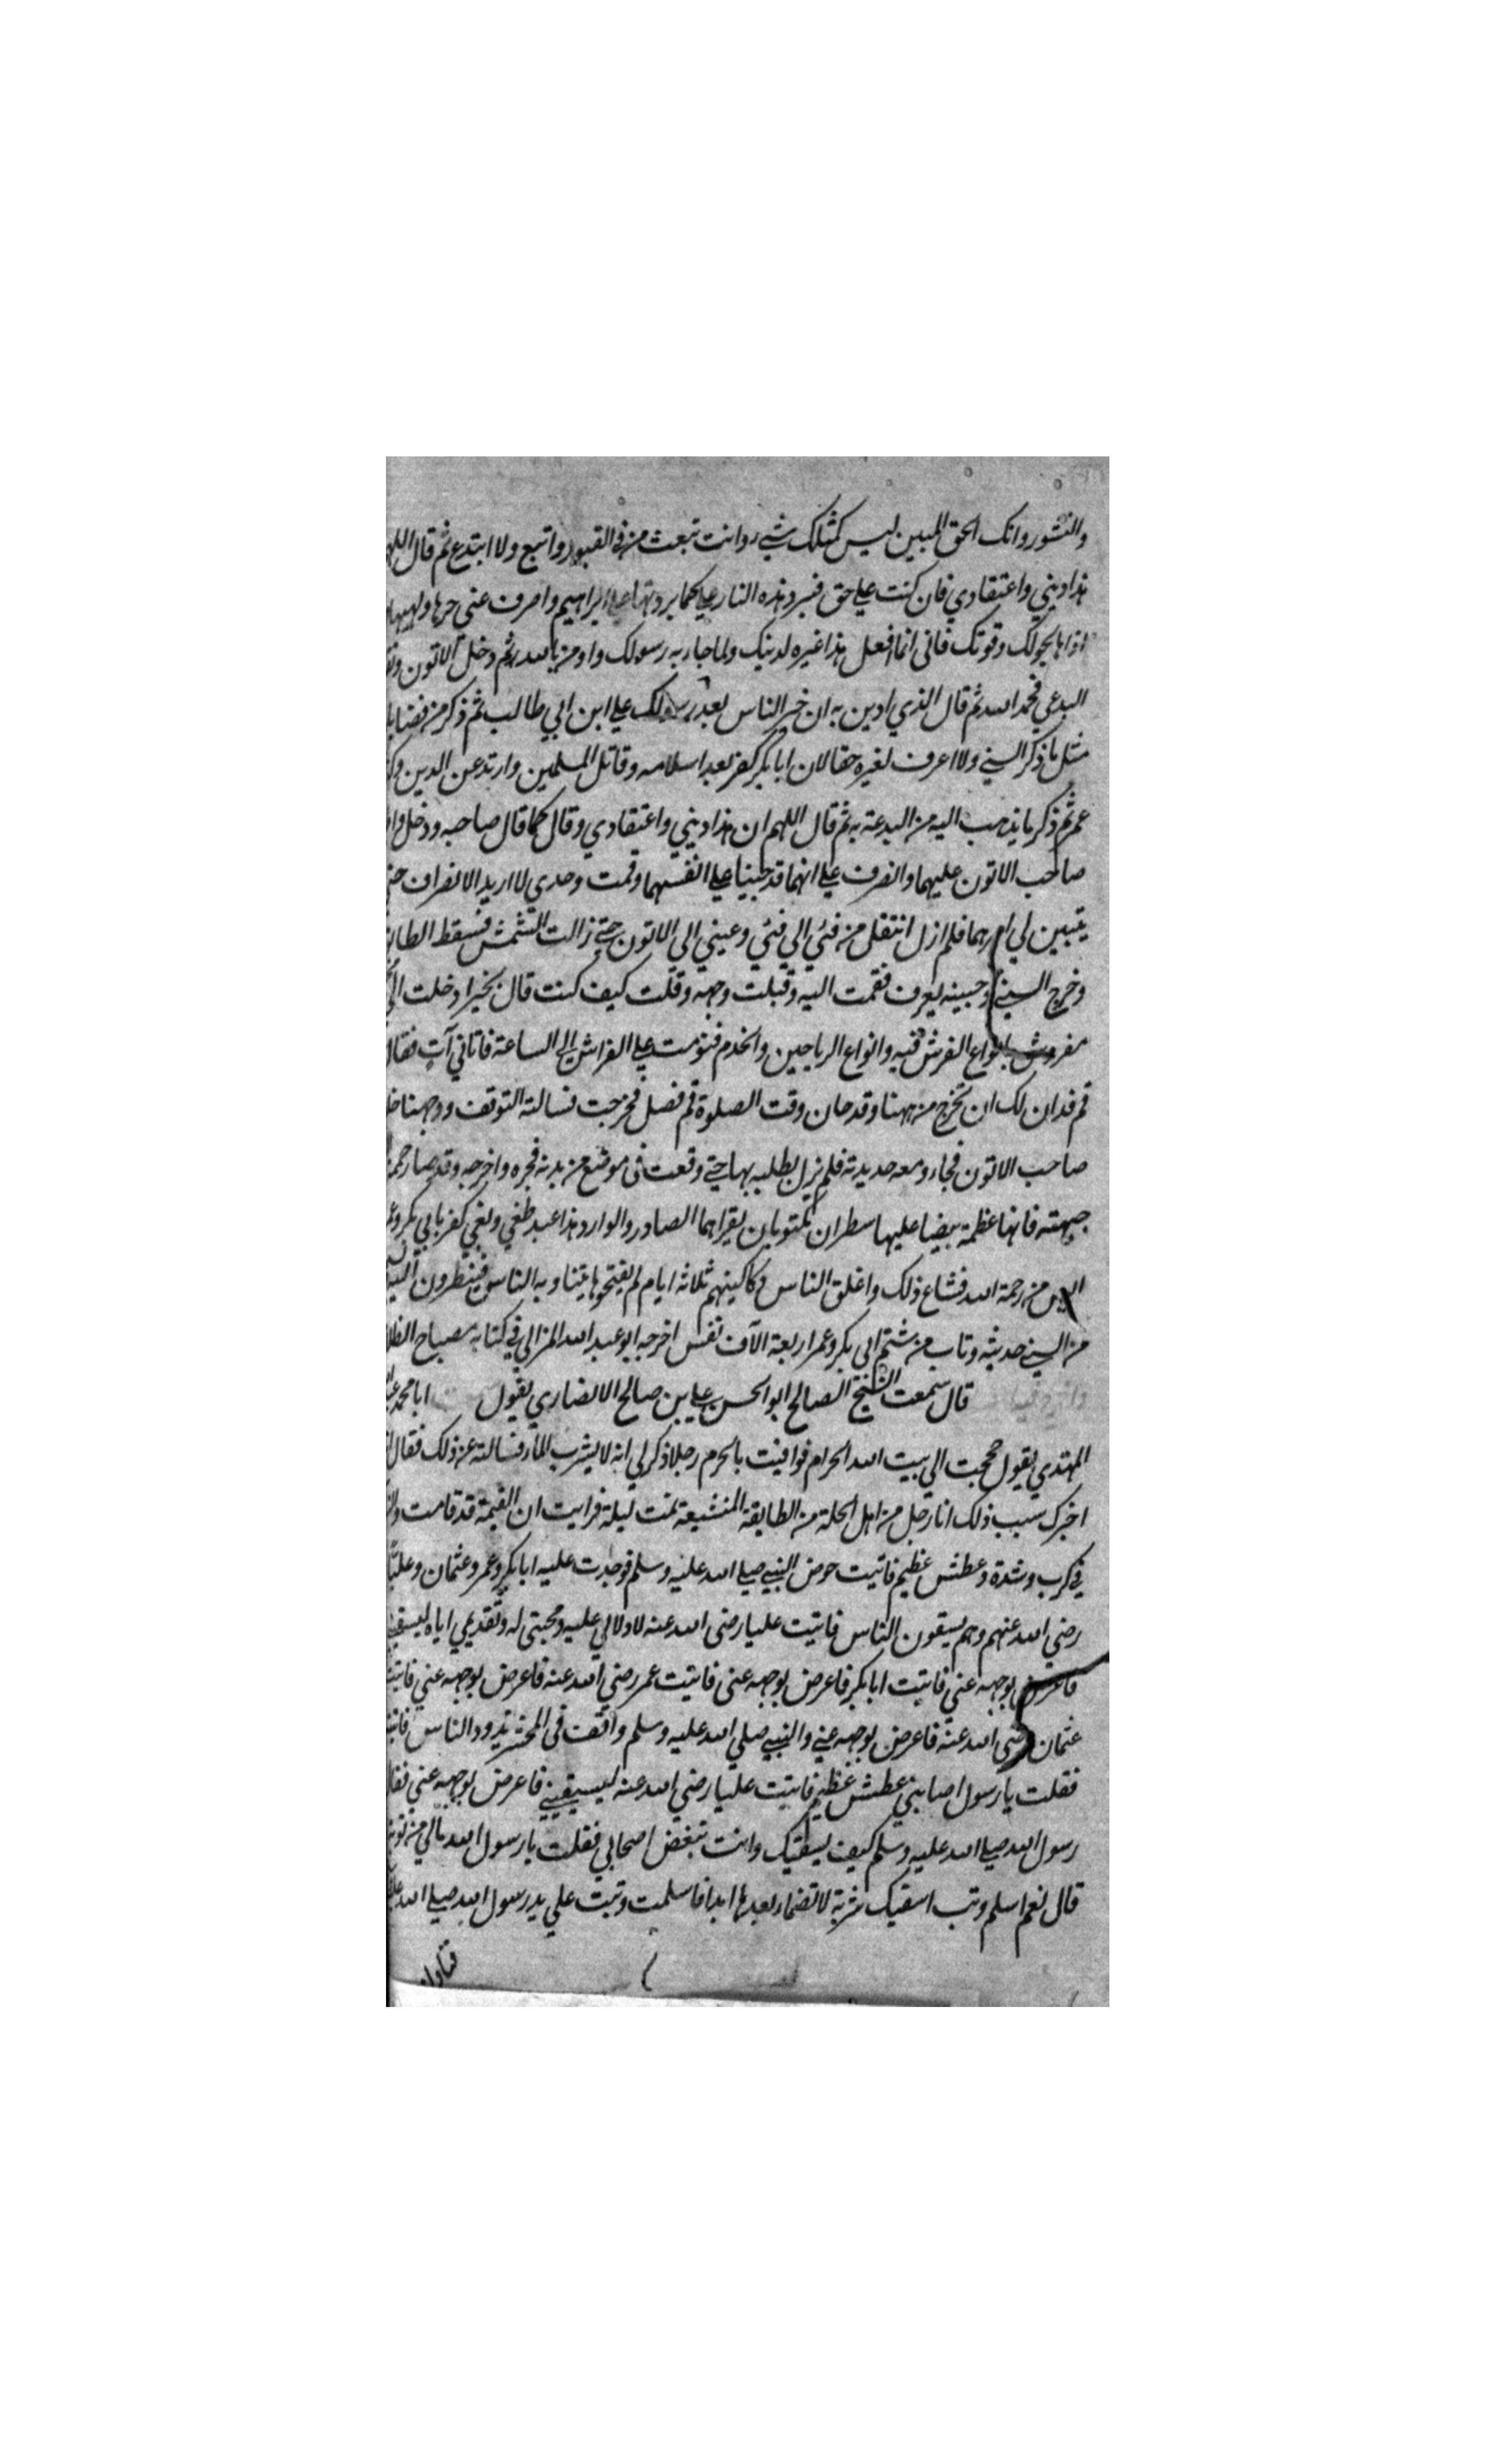 والنشور وانك الحق المبين ليس كمثلك شيء وانت تبعث من في القبور واتبع ولا ابتدع ثم قال اللهم
هذا ديني واعتقادي فان كنت علي حق فبرد هذه النار علي كما بردتها علي ابراهيم واصرف عني حرها ولهيبها
اذاها بحولك وقوتك فاني انما افعل هذا غيره لدينك ولما جاء به رسولك واومن بالله ثم دخل الاتون
البدعي فحمد الله ثم قال الذي ادين به ان خير الناس بعد رسولك علي ابن ابي طالب ثم ذكر من
مثل ما ذكر السني ولا اعرف لغيره حقا لان ابا بكر كفر بعد اسلامه وقاتل المسلمين وارتد عن الدين
عمر ثم ذكر ما يذهب اليه من البدعة به ثم قال اللهم ان هذا ديني واعتقادي وقال كما قال صاحبه ودخل
صاحب الاتون عليهما وانصرف علي انهما قد جنيا علي انفسهما وقمت وحدي لا اريد الانصراف
يتبين لي امرهما فلم ازل انتقل من فئي الي فئي وعيني الي الاتون حتي زالت الشمس فسقط
وخرج السني وجبينه يعرف فقمت اليه وقبلت وجهه وقلت كيف كنت قال بخير ادخلت الي
مفروش بانواع الفرش فيه وانواع الرياحين والخدم فنومت علي الفراش الي الساعة فاتاني آت فقال
قم فدان لك ان تخرج من ههنا وقد حان وقت الصلوة قم فصل فخرجت فسالته التوقف ووجهنا
صاحب الاتون فجاء ومعه حديدته فلم يزل يطلبه بها حتي وقعت في موضع من بدنه فجره واخرجه وقد صار
جبهته فانها عظمة بيضا عليها سطران مكتوبان يقراهما الصادر والوارد هذا عبد طغي وبغي كفر بابي بكر
اليس من رحمة الله فشاع ذلك واغلق الناس دكاكينهم ثلاثه ايام لم يفتحوها يتناوبه الناس فينظرون اليه
من السني حديثه وتاب من شتم ابي بكر وعمر اربعة الآف نفس اخرجه ابو عبد الله المزالي في كتابه مصباح
قال سمعت الشيخ الصالح ابو الحسن علي بن صالح الانصاري يقول ابا محمد
المهتدي يقول حججت الي بيت الله الحرام فوافيت بالحرم رجلا ذكر لي انه لا يشرب الماء فسالته عن ذلك فقال
اخبرك سبب ذلك انا رجل من اهل الحلة من الطايفة المنشيعة نمت ليلة فرايت ان القيمة قد قامت
في كرب وشدة وعطش عظيم فاتيت حوض النبي صلي الله عليه وسلم فوجدت عليه ابا بكر وعمر وعثمان وعليا
رضي الله عنهم وهم يسقون الناس فاتيت عليا رضي الله عنه لادلالي عليه ومحبتي له وتقديمي اياه ليسقيني
فاعرض بوجهه عني فاتيت ابا بكر فاعرض بوجهه عني فاتيت عمر رضي الله عنه فاعرض بوجهه عني فاتيت
عثمان رضي الله عنه فاعرض بوجهه عني والنبي صلي الله عليه وسلم واقف في المحشر يذود الناس
فقلت يا رسول اصابني عطش عظيم فاتيت عليا رضي الله عنه ليسيقيني فاعرض بوجهه عني
رسول الله صلي الله عليه وسلم كيف يسقيك وانت تبغض اصحابي فقلت يا رسول الله مالي من
قال نعم اسلم وتب اسقيك شربة لا تضماء بعدها ابدا فاسلمت وتبت علي يد رسول الله صلي الله